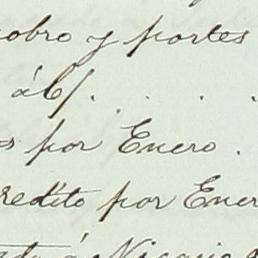 cobro y portes
á b/. . . .
s por Enero .
redito por Ener
á Nicario